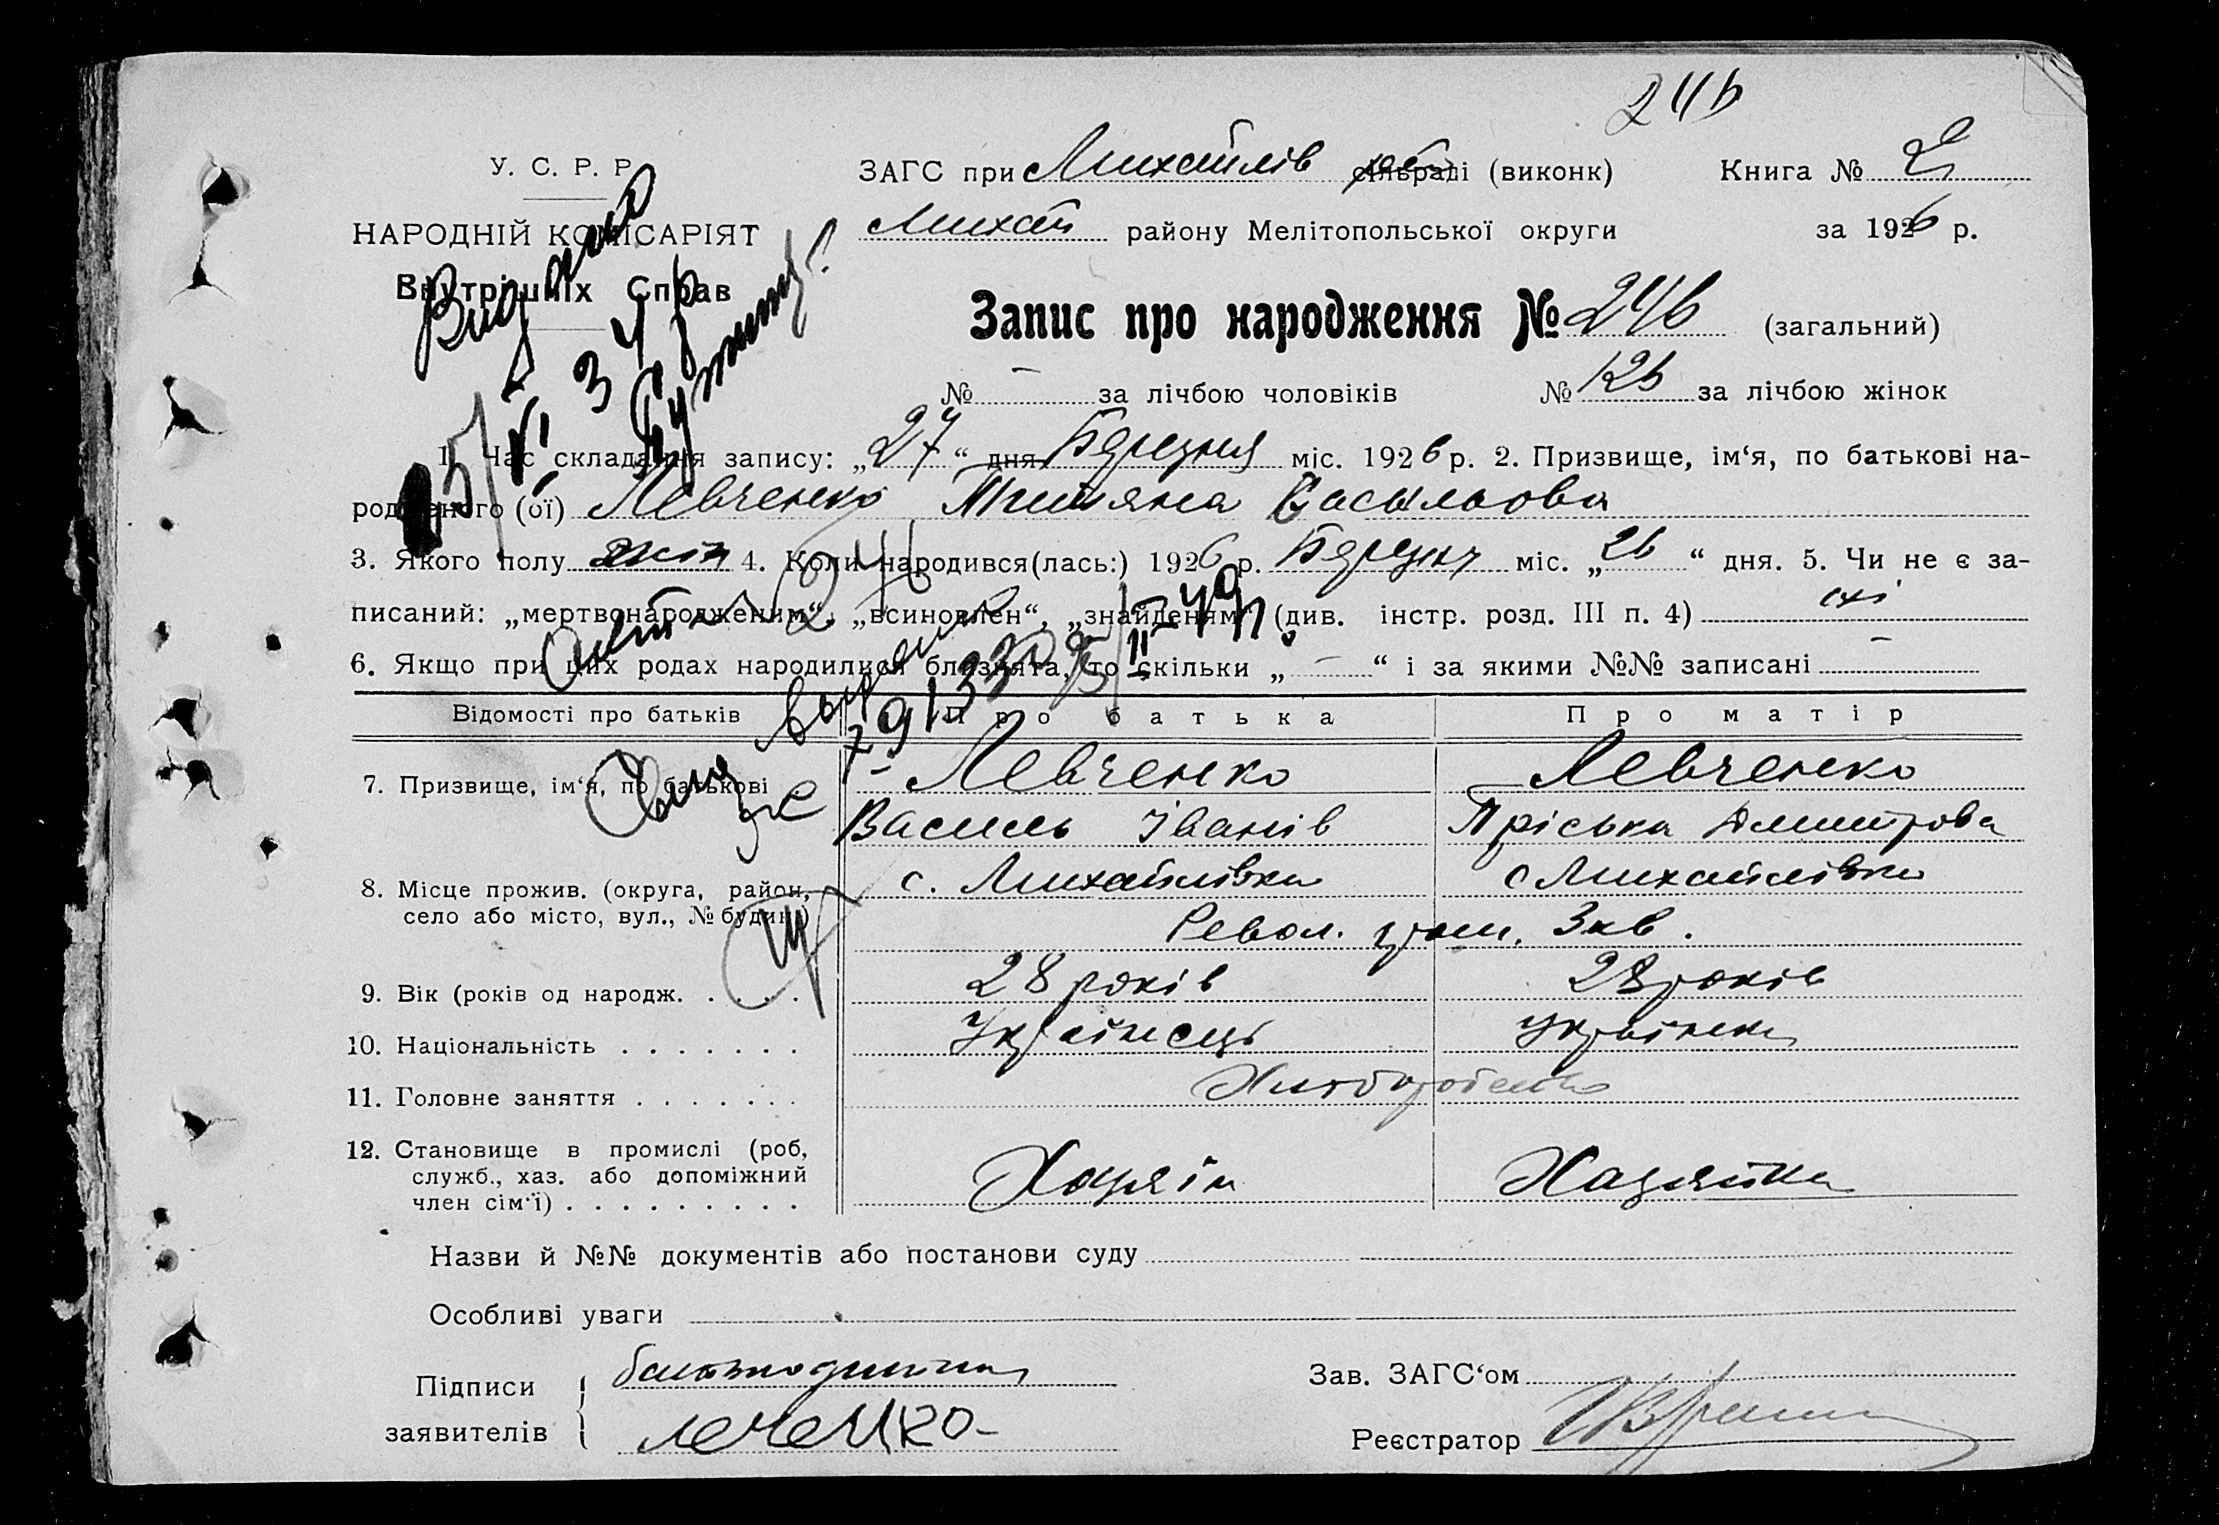 246
У. С. Р. Р.
ЗАГС при Михайлів сільраді (виконк) Книга № 2
НАРОДНІЙ КОМІСАРІЯТ
Михай району Мелітопольської округи за 1926 р.
Внутрішніх Справ
Запис про народження № 246 (загальний)
№ - за лічбою чоловіків № 126 за лічбою жінок
1. Час складання запису: „27“ дня Березня міс. 1926 р. 2. Призвище, ім‘я, по батькові на-
родженого (ої) Левченко Титяна Васильова
3. Якого полу жін 4. Коли народився(лась:) 1926 р. Березня міс. „26“ дня. 5. Чи не є за-
писаний: „мертвонародженим“, „всиновлен“, „знайденям“ (див. інстр. розд. III п. 4)
6. Якщо при цих родах народилися близнята, то скільки „-“ і за якими №№ записані -
Видано
№ 34
Відомості про батьків Про батька Про матір
7. Призвище, ім‘я, по батькові Левченко Левченко
Василь Іванів Пріська Дмитрова
8. Місце прожив. (округа, район, с. Михайлівка с Михайлівка
село або місто, вул., № будин.)
Револ. 3 кв.
9. Вік (років од народж. . . . . 28 років 28 років
10. Національність . . . . . . . Українець Українка
11. Головне заняття . . . . . . . Хліборобство
12. Становище в промислі (роб,
служб., хаз. або допоміжний Хазяін Хазяйка
член сім‘ї) . . . . . . . . .
Назви й №№ документів або постанови суду
Особливі уваги
Підписи
заявителів
Зав. ЗАГС‘ом
Реєстратор